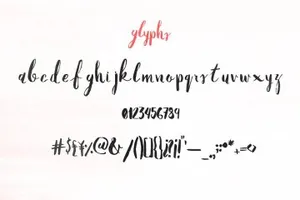 glyphs
abcdefghijklmnopqrstuvwxyz
0123456789
#$€¥%@&/()[]{}¿?¡!"—_,;:*°+=<>